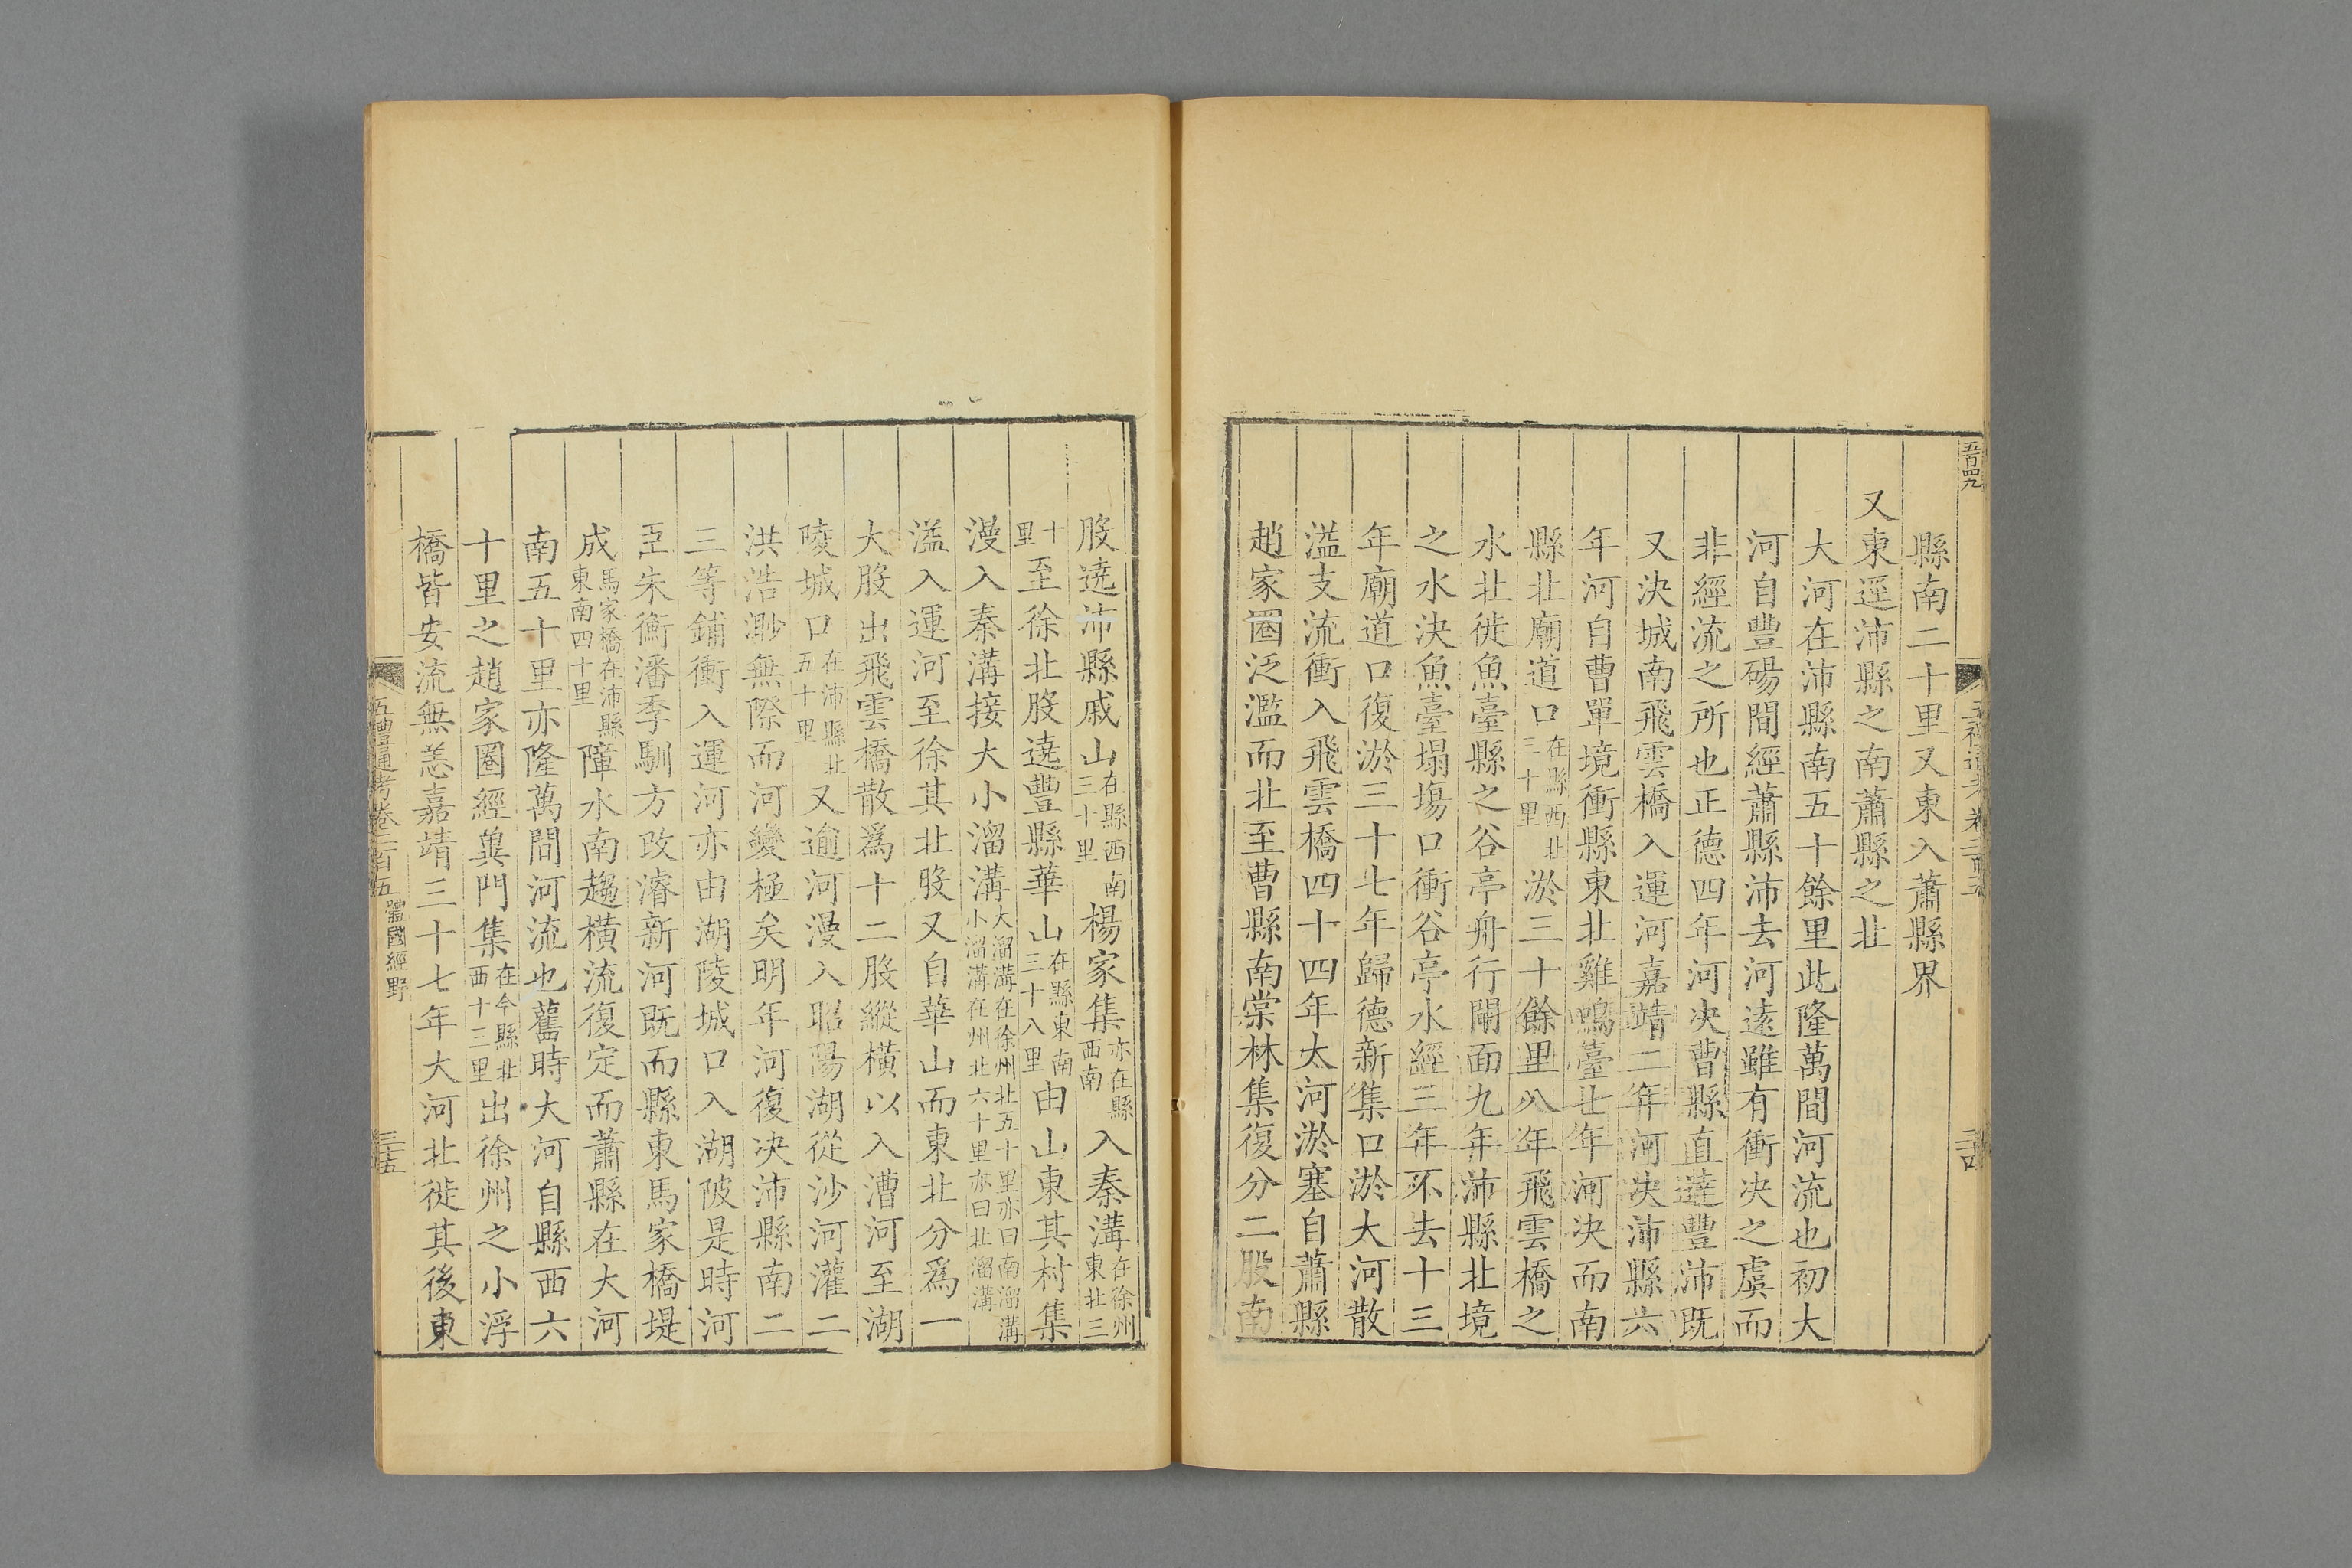 五百四九
縣南二十里又東入蕭縣界
又東逕沛縣之南蕭縣之北
大河在沛縣南五十餘里此隆萬間河流也初大
河自豐碭間經蕭縣沛去河遠雖有衝决之虞而
非經流之所也正德四年河决曹縣直達豐沛既
又決城南飛雲橋入運河嘉靖二年河决沛縣六
年河自曹單境衝縣東北雞鳴臺七年河决而南
縣北廟道口在縣西北二十里淤三十餘里八年飛雲橋之
水北徙魚臺縣之谷亭舟行閘面九年沛縣北境
之水決魚臺塌塲口衝谷亭水經三年不去十三
年廟道口復淤三十七年歸德新集口淤大河散
溢支流衝入飛雲橋四十四年大河淤塞自蕭縣
趙家圈泛濫而北至曹縣南棠林集復分二股南
股遶沛縣戚山在縣西南三十里楊家集亦在縣西南入秦溝在徐州東北三
十里至徐北股遶豐縣華山在縣東南三十八里由山東其村集
漫入秦溝接大小溜溝大溜溝在徐州北五十里亦曰南溜溝小溜溝在州北六十里亦曰北溜溝
溢入運河至徐其北股又自華山而東北分爲一
大股出飛雲橋散爲十二股縱橫以入漕河至湖
陵城口在沛縣北五十里又逾河漫入昭陽湖從沙河灌二
洪浩渺無際而河變極矣明年河復决沛縣南二
三等鋪衝入運河亦由湖陵城口入湖陂是時河
臣朱衡潘季馴方改濬新河既而縣東馬家橋堤
成馬家橋在沛縣東南四十里障水南趨橫流復定而蕭縣在大河
南五十里亦隆萬間河流也舊時大河自縣西六
十里之趙家圈經冀門集在今縣北西十三里出徐州之小浮
橋皆安流無恙嘉靖三十七年大河北徙其後東
五禮通考卷二百五 體國經野
三十五